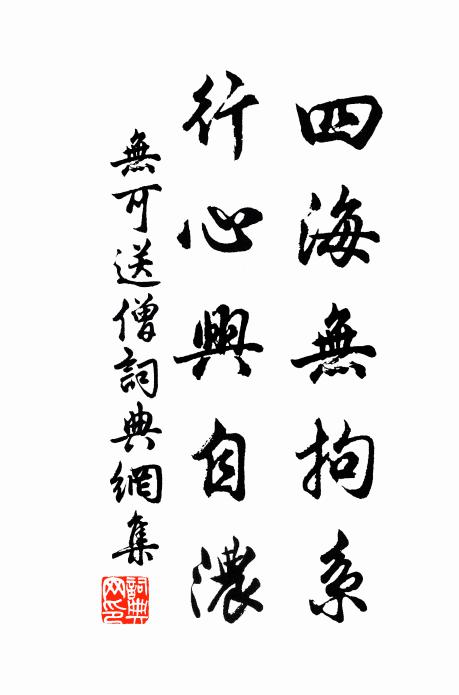 四海無拘系
行心興自濃
無可送僧詞典網集
詞典网印